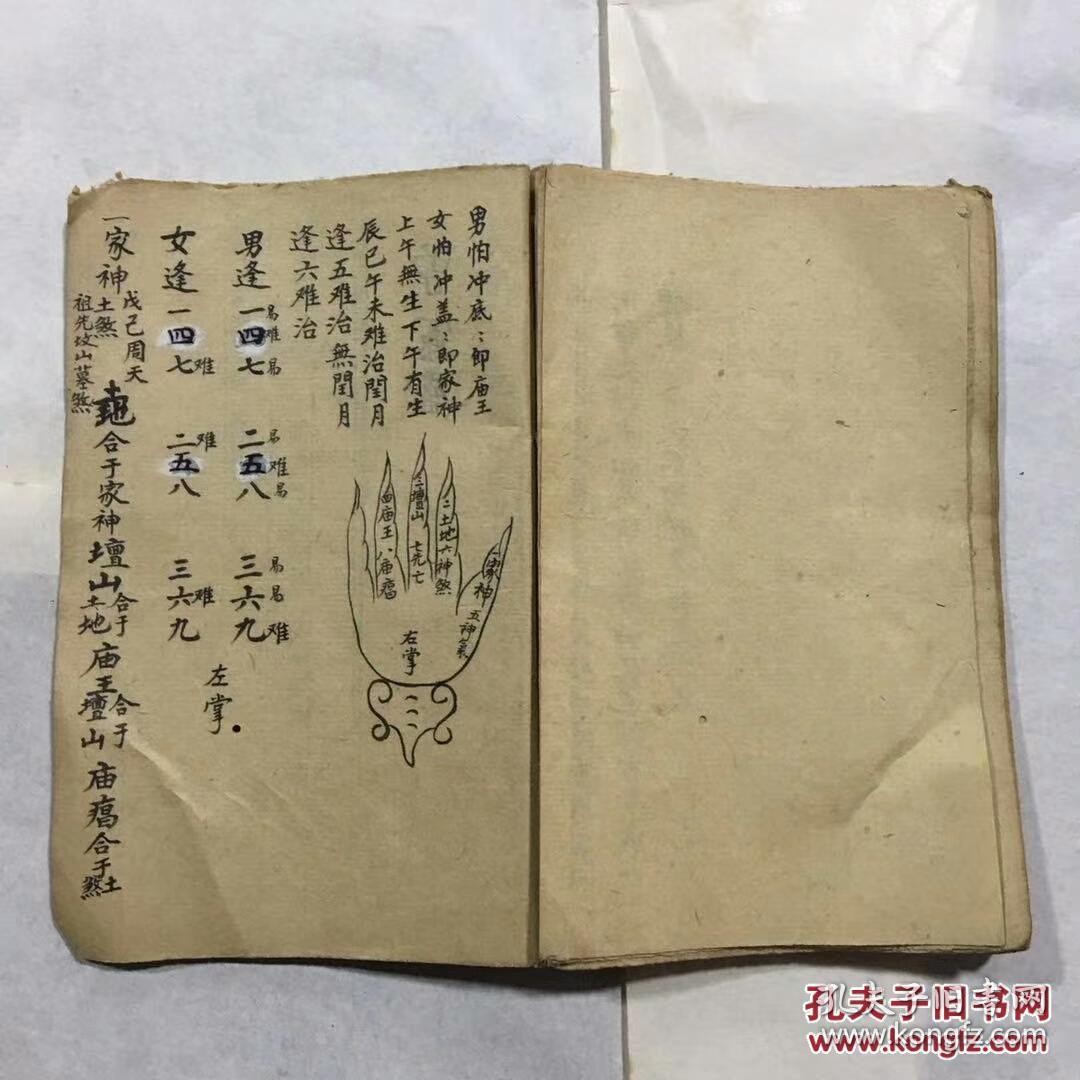 男怕冲底：即庙王
女怕冲盖：即家神
上午無生下午有生
辰巳午未难治閏月
逢五难治無閏月
逢六难治
男逢一易四难七易 二易五难八易 三易六易九难
女逢一四七难 二难五八 三六难九
左掌
一家神
戊己周天
土煞
祖先坟山墓煞
合于家神壇山合于土地庙王合于壇山庙瘟合于土煞
一家神 五神氣
二土地六神煞
三壇山 七先亡
四庙王八庙瘟
右掌
孔夫子旧书网
www.kongfz.com